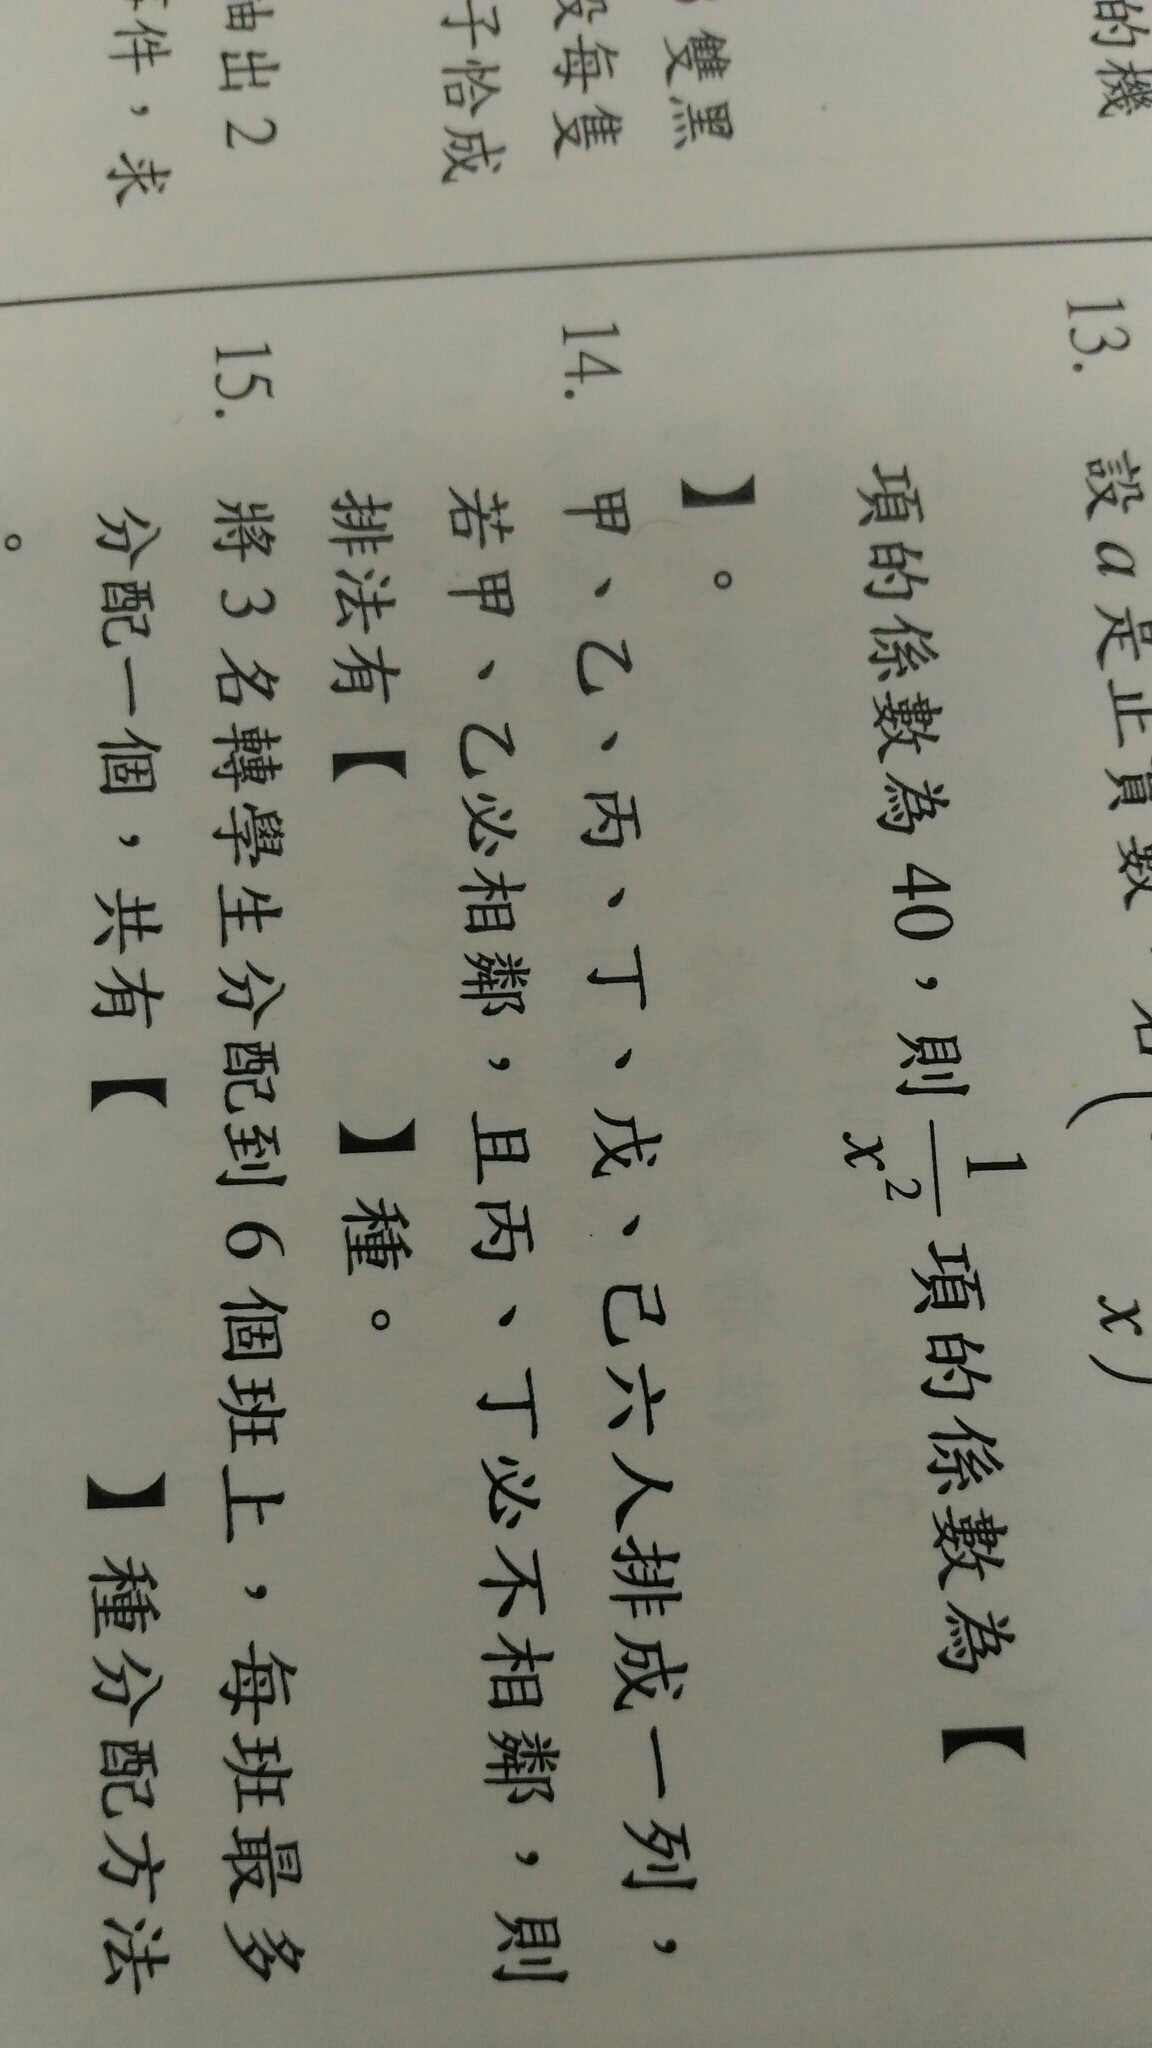 的機
雙黑
每隻
子恰成
抽出2
件，求
13. 設a是正實數，若( x)
項的係數為40，則1/x²項的係數為【
】。
14. 甲、乙、丙、丁、戊、己六人排成一列，
若甲、乙必相鄰，且丙、丁必不相鄰，則
排法有【 】種。
15. 將3名轉學生分配到6個班上，每班最多
分配一個，共有【 】種分配方法
。